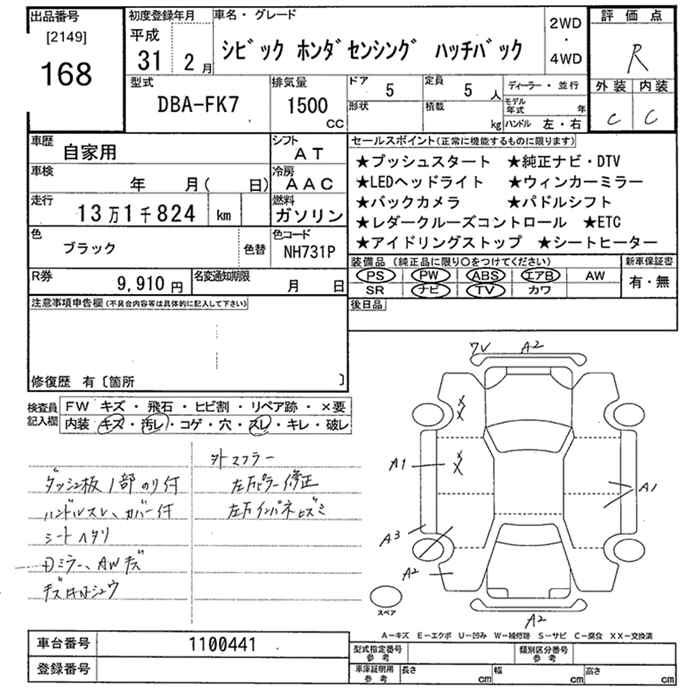 出品番号 初度登録年月 車名・グレード 2WD ・ 4WD 評価点
[2149] 168
平成 31 2月 シビック ホンダセンシング ハッチバック R
型式 DBA-FK7 排気量 1500 CC ドア 5 定員 5 人 ディーラー・並行 外装 内装
形状 積載 kg モデル年式 年 ハンドル 左・右 C C
車歴 自家用 シフト AT セールスポイント(正常に機能するものに限ります)
★プッシュスタート ★純正ナビ・DTV
車検 年 月( 日) 冷房 AAC ★LEDヘッドライト ★ウィンカーミラー
走行 13万1千824 km 燃料 ガソリン ★バックカメラ ★パドルシフト
★レダークルーズコントロール ★ETC
色 ブラック 色替 色コード NH731P ★アイドリングストップ ★シートヒーター
R券 9,910円 名変通知期限 月 日 装備品(純正品に限り○をつけてください) 新車保証書
PS PW ABS エアB AW 有・無
SR ナビ TV カワ
注意事項申告欄(不具合内容等は具体的に記入して下さい) 後日品
修復歴 有〔箇所 〕
検査員記入欄 FW キズ・飛石・ヒビ割・リペア跡・×要
内装 キズ・汚レ・コゲ・穴・スレ・キレ・破レ
外マフラー
ダッシュ板1部のり付 左右ピラー修正
ハンドルスレ、カバー付
シートヘタリ
Dミラー、AWキズ
7V A2
A1 A1
A3
A2
A2
スペア
A－キズ E－エクボ U－凹み W－補修跡 S－サビ C－腐食 XX－交換済
車台番号 1100441 型式指定番号 参考 類別区分番号 参考
登録番号 車庫証明用 参考 長さ cm 幅 cm 高さ cm